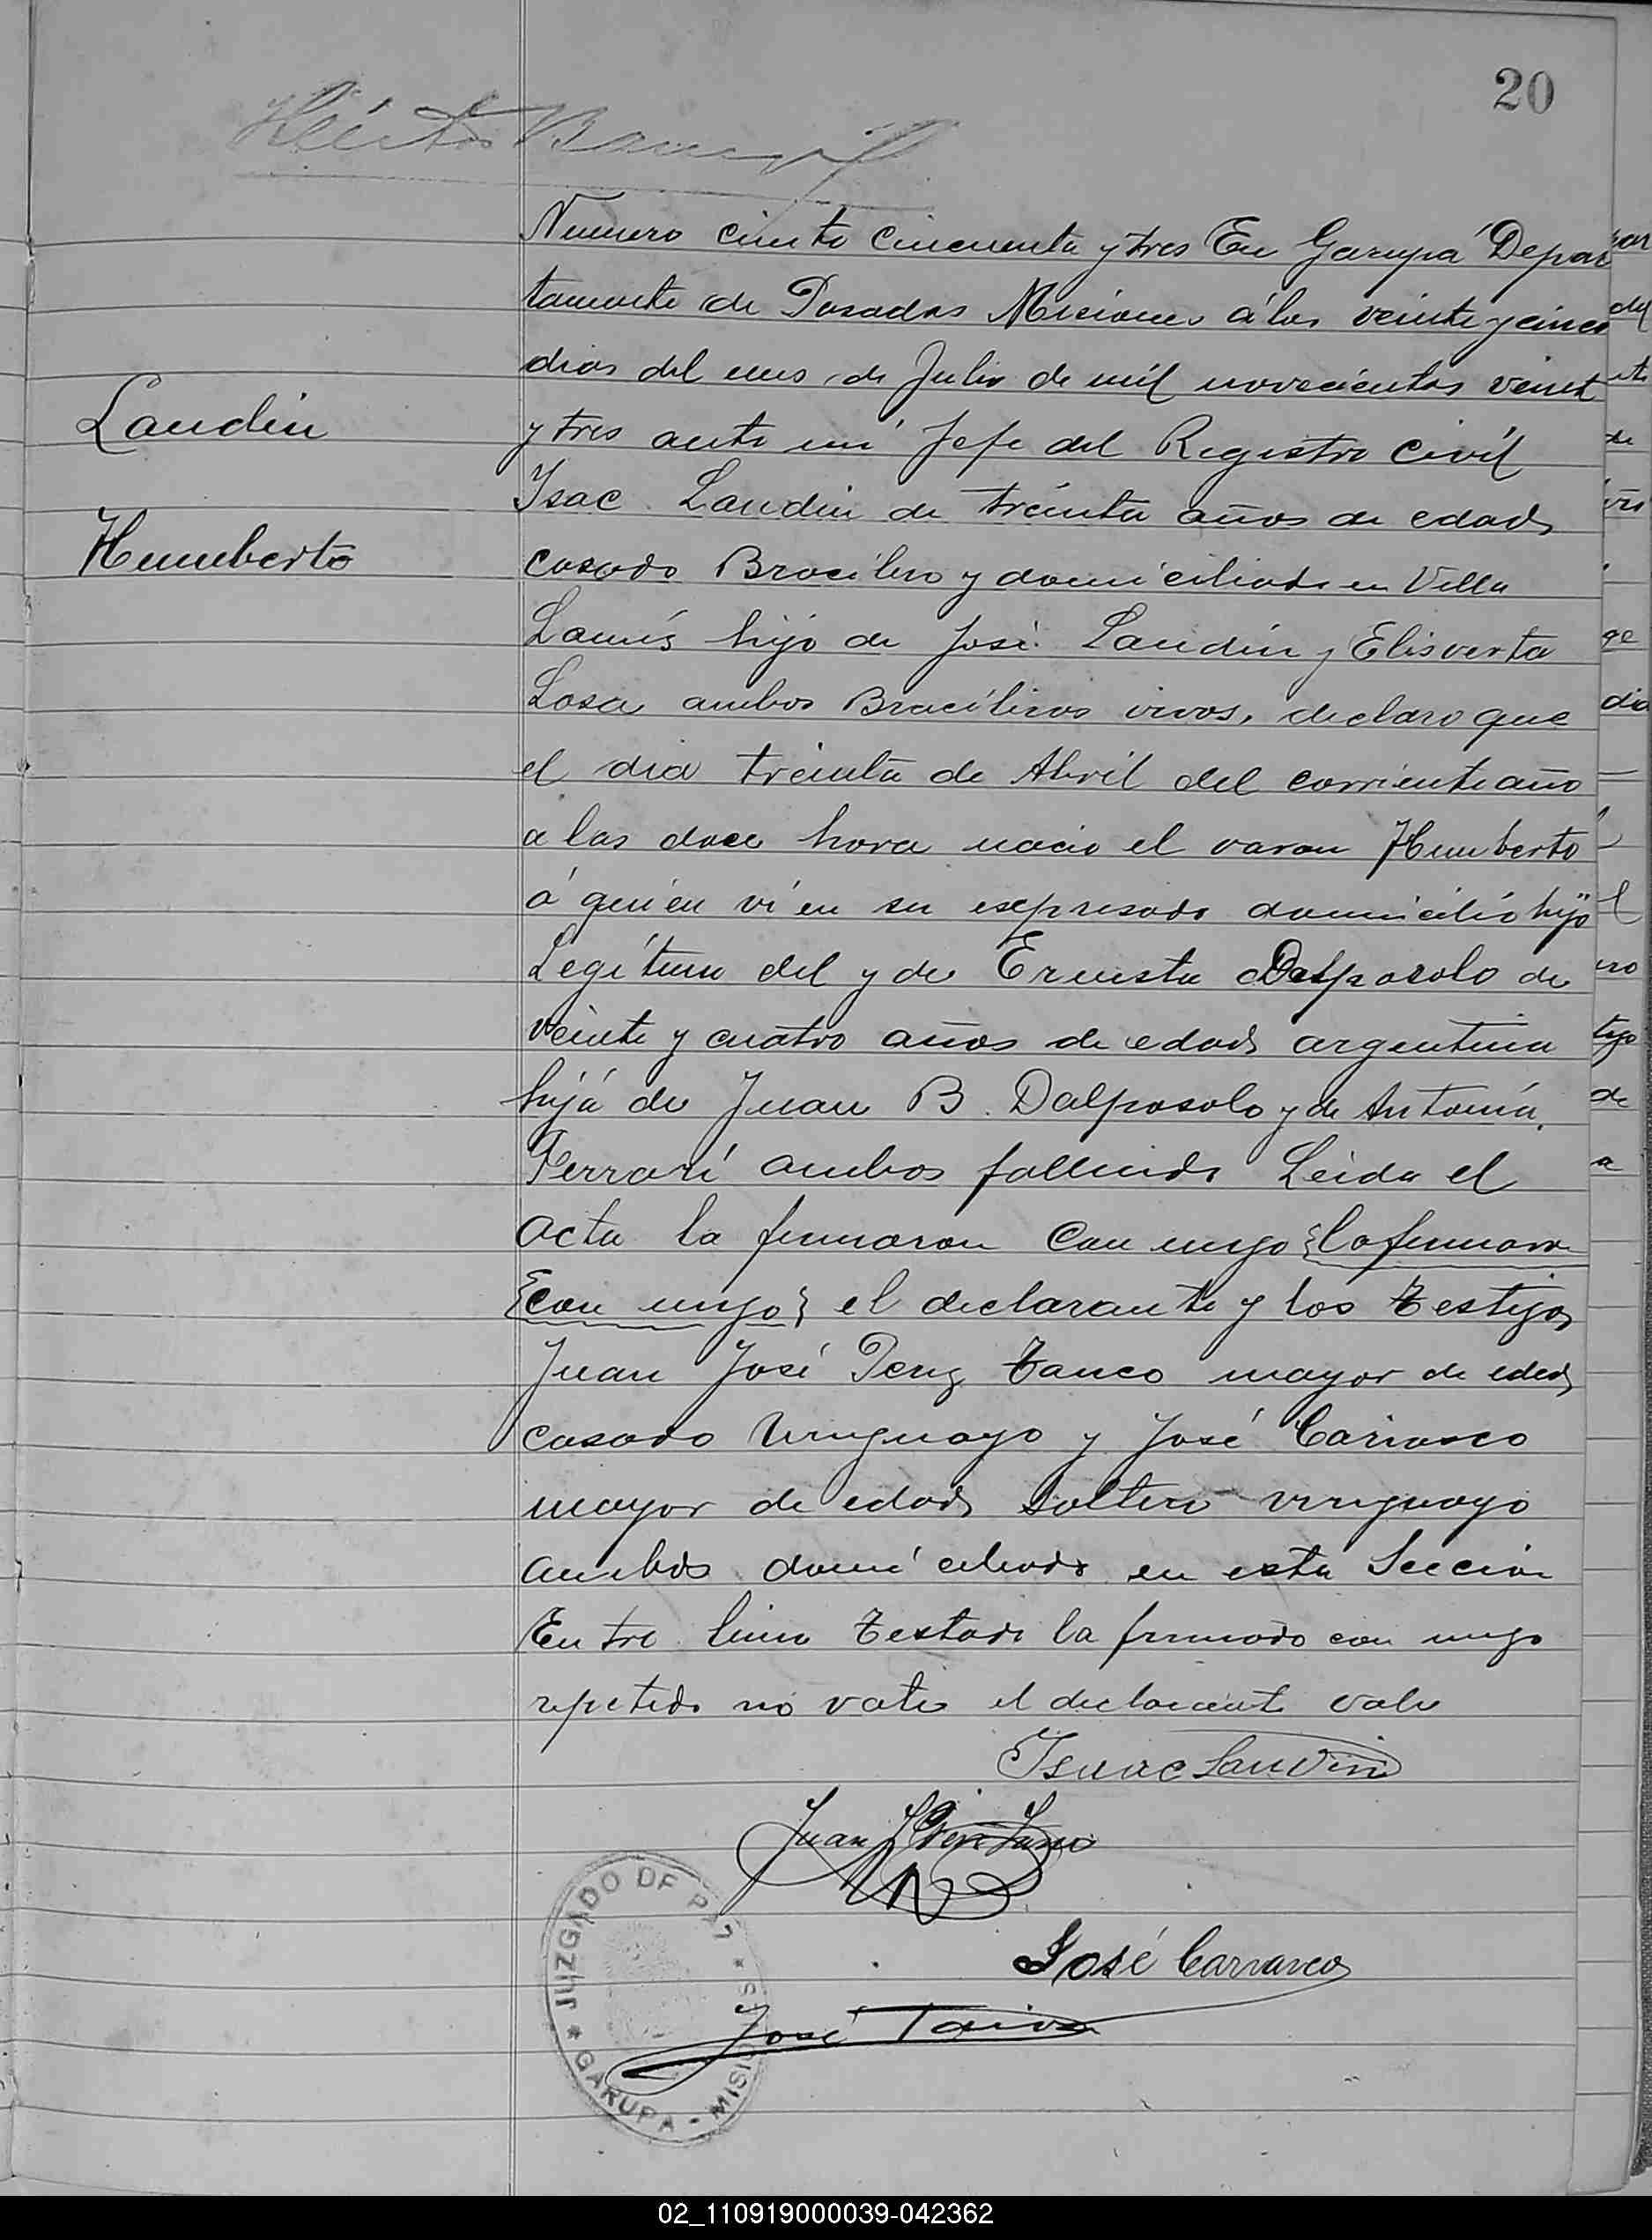 20
Numero ciento cincuenta y tres En Garupá Depar
tamento de Posadas Misiones á los veinte y cinco
dias del mes de Julio de mil novecientos veint
y tres ante mi Jefe del Registro Civil
Landin
Isac Landin de treinta años de edad
Humberto
casado Bracilero y domiciliado en Villa
Lanús hijo de José Landin y Elisverta
Losa ambos Bracileros vivos, declaro que
el dia treinta de Abril del corriente año
a las doce hora nacio el varon Humberto
á quien ví en su espresado domicilio hijo
Legitimo del y de Ernesta Dalposolo de
veinte y cuatro años de edad argentina
hija de Juan B. Dalposolo y de Antonia
Ferrari ambos fallecido Leida el
acta la firmaron con migo {la firmaron
{con migo} el declarante y los testigos
Juan José Perez Tanco mayor de edad
casado Uruguayo y José Carrasco
mayor de edad soltero uruguayo
ambos domiciliado en esta Seccion
Entre linia testado la firmado con migo
repetido no vale el declarante vale
Isaac Landin
Juan J Perez Tanco
José Carrasco
José
JUZGADO DE PAZ * MISIONES - GARUPA *
02_110919000039-042362